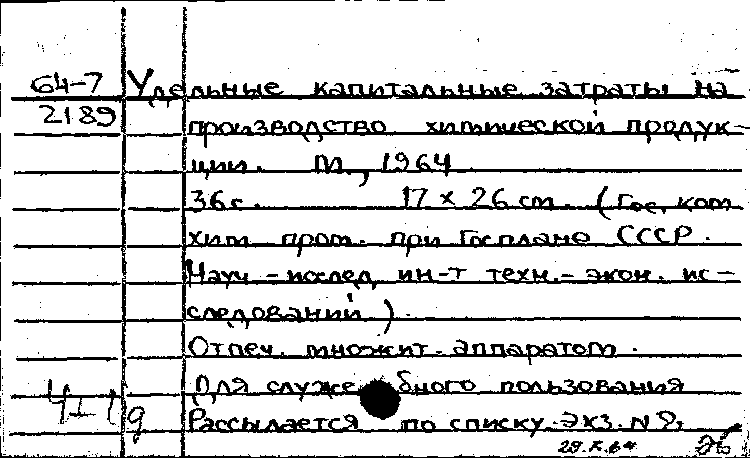 64-7 Удельные капитальные затраты на
2189 производство химической продук-
ции. М., 1964.
36 с. 17 x 26 cm. (Гос. ком
хим пром. при Госплане СССР.
Науч-исслед ин-т техн.-экон. ис-
следований).
Отпеч. множит. аппаратом.
Для служебного пользования
g Рассылается по списку. Экз. N
29.X.64